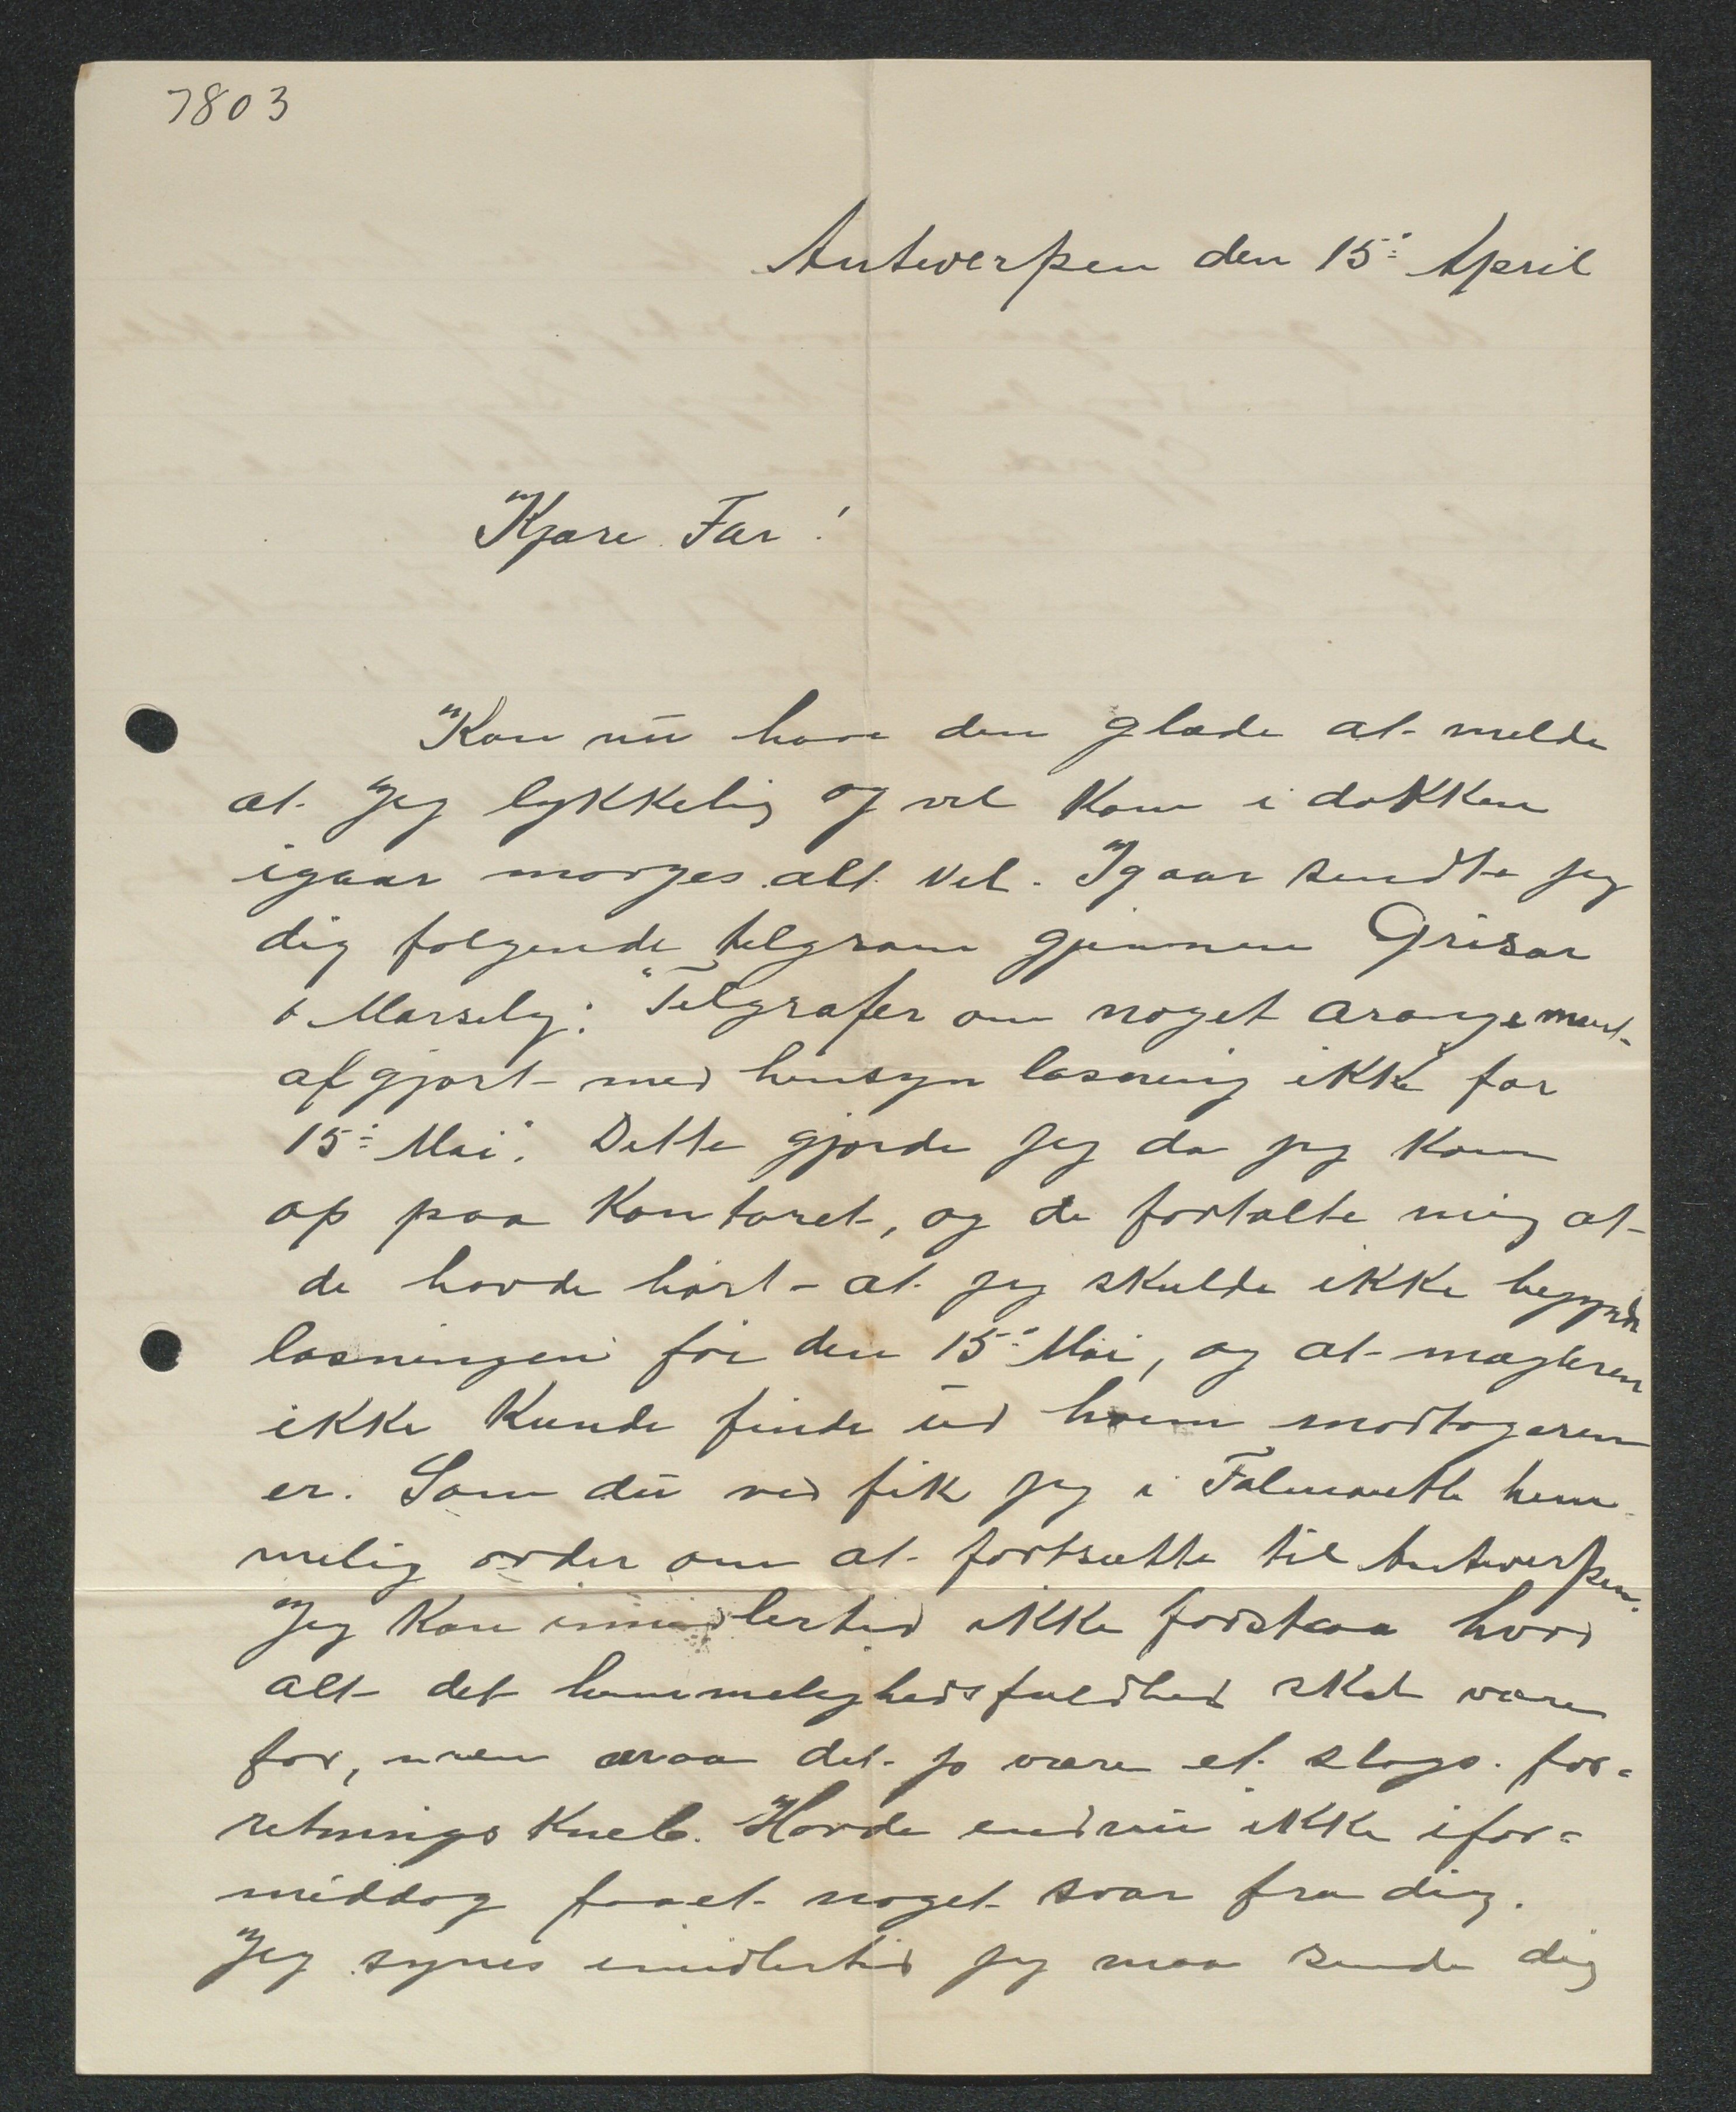 7803
Antwerpen den 15: April
Kjære Far!
Kan nu have den glæde at melde
at jeg lykkelig og vel kom i dokken
igaar morges alt vel. Igaar sendte jeg
dig følgende telgram gjennem Grisar
& Marsily: "Telgrafer om noget arangement
afgjort med hensyn losning ikke før
15: Mai". Dette gjorde jeg da jeg kom
op paa kontoret, og de fortalte mig at
de havde hørt at jeg skulde ikke begynde
losningen før den 15: Mai, og at mægleren
ikke kunde finde ud hvem modtageren
er. Som du ved fik jeg i Falmouth hem-
melig order om at fortsætte til Antwerpen.
Jeg kan immidlertid ikke forstaa hvad
alt det hemmelighedsfuldhed skal være
for, men maa det jo være et slags for=
retnings kneb. Havde endnu ikke ifor=
middag faaet noget svar fra dig.
Jeg synes imidlertid jeg maa sende dig